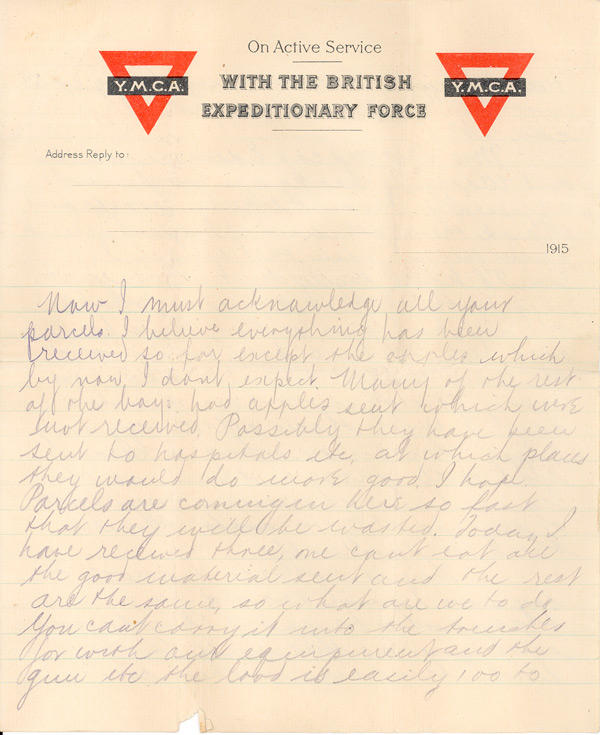 On Active Service
WITH THE BRITISH
EXPEDITIONARY FORCE
Y.M.C.A.
Y.M.C.A.
Address Reply to:
1915
Now I must acknowledge all your
parcels. I believe everything has been
received so far except the apples which
by now I dont expect. Many of the rest
of the boys had apples sent which were
not received. Possibly they have been
sent to hospitals etc, at which places
they would do more good I hope.
Parcels are coming in here so fast
that they will be wasted. Today I
have received three, one cant eat all
the good material sent and the rest
are the same, so what are we to do.
You cant carry it into the trenches
for with our equipment and the
gun etc the load is easily 100 to